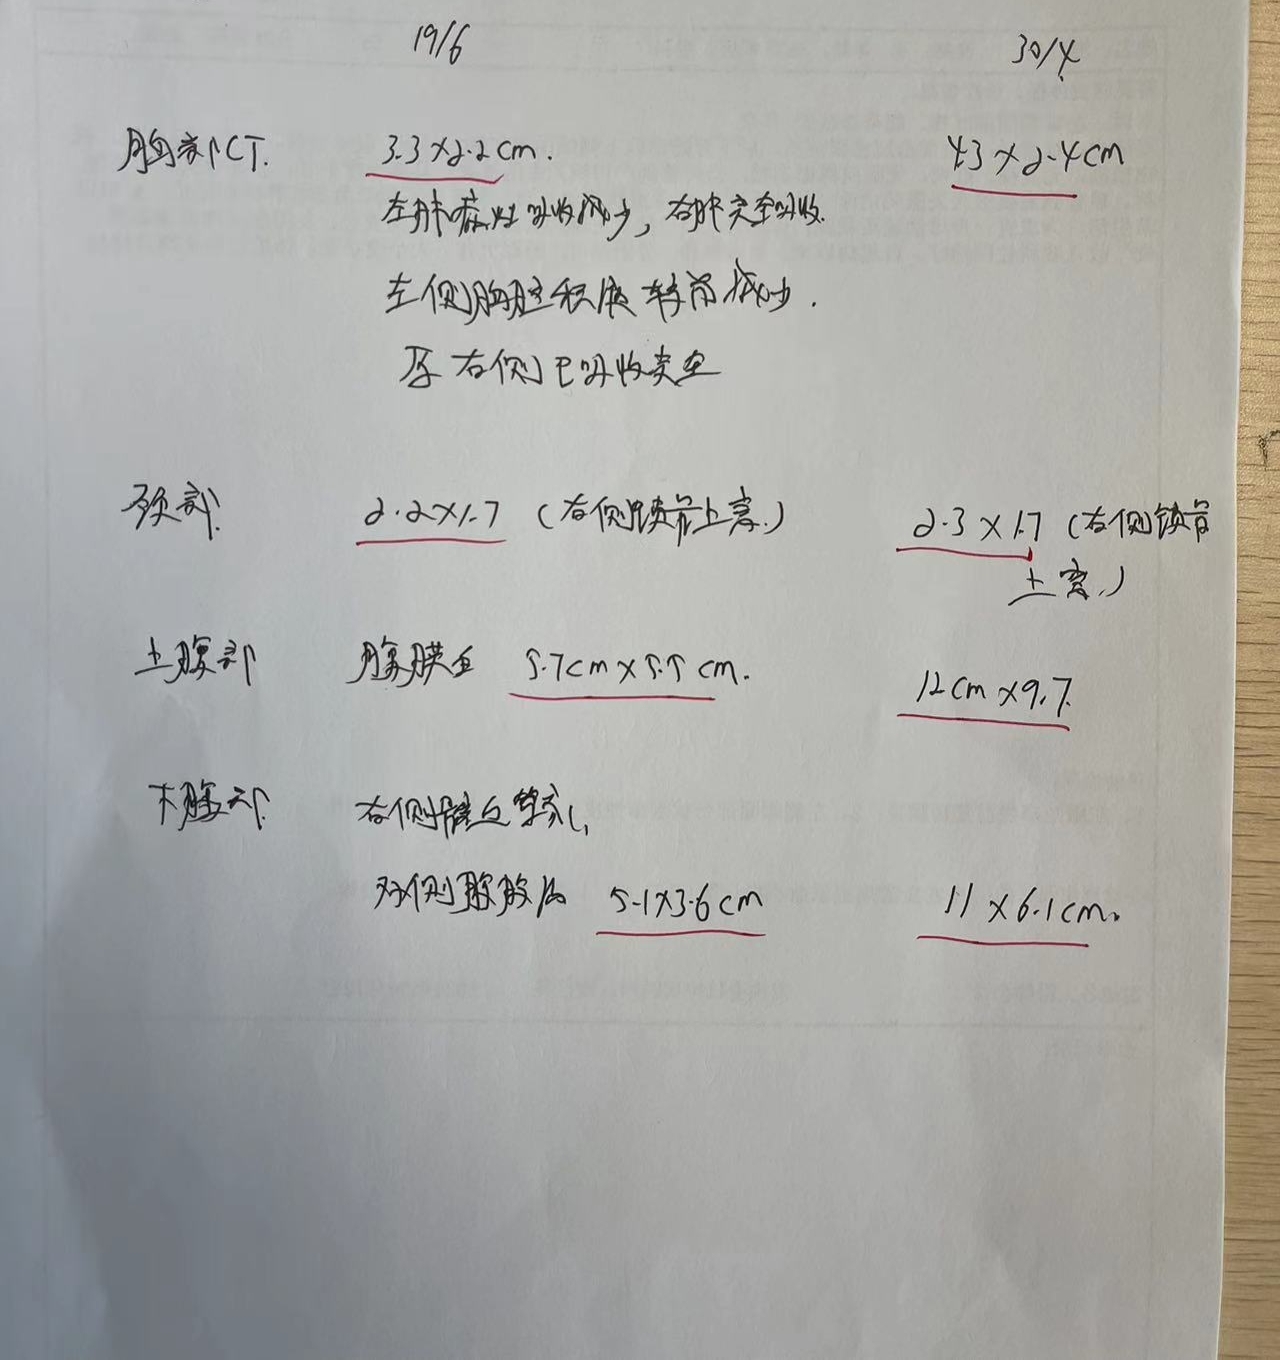 19/6 30/4
胸部CT. 3.3×2.2cm. 4.3×2.4cm
左肺病灶吸收减少，右肺完全吸收.
左侧胸腔积液较前减少.
原右侧已吸收完全
颈部 2.2×1.7（右侧锁骨上窝.） 2.3×1.7（右侧锁骨
上窝.）
上腹部 腹膜后 5.7cm×5.5cm. 12cm×9.7.
下腹部 右侧髂
双侧 5.1×3.6cm 11×6.1cm.